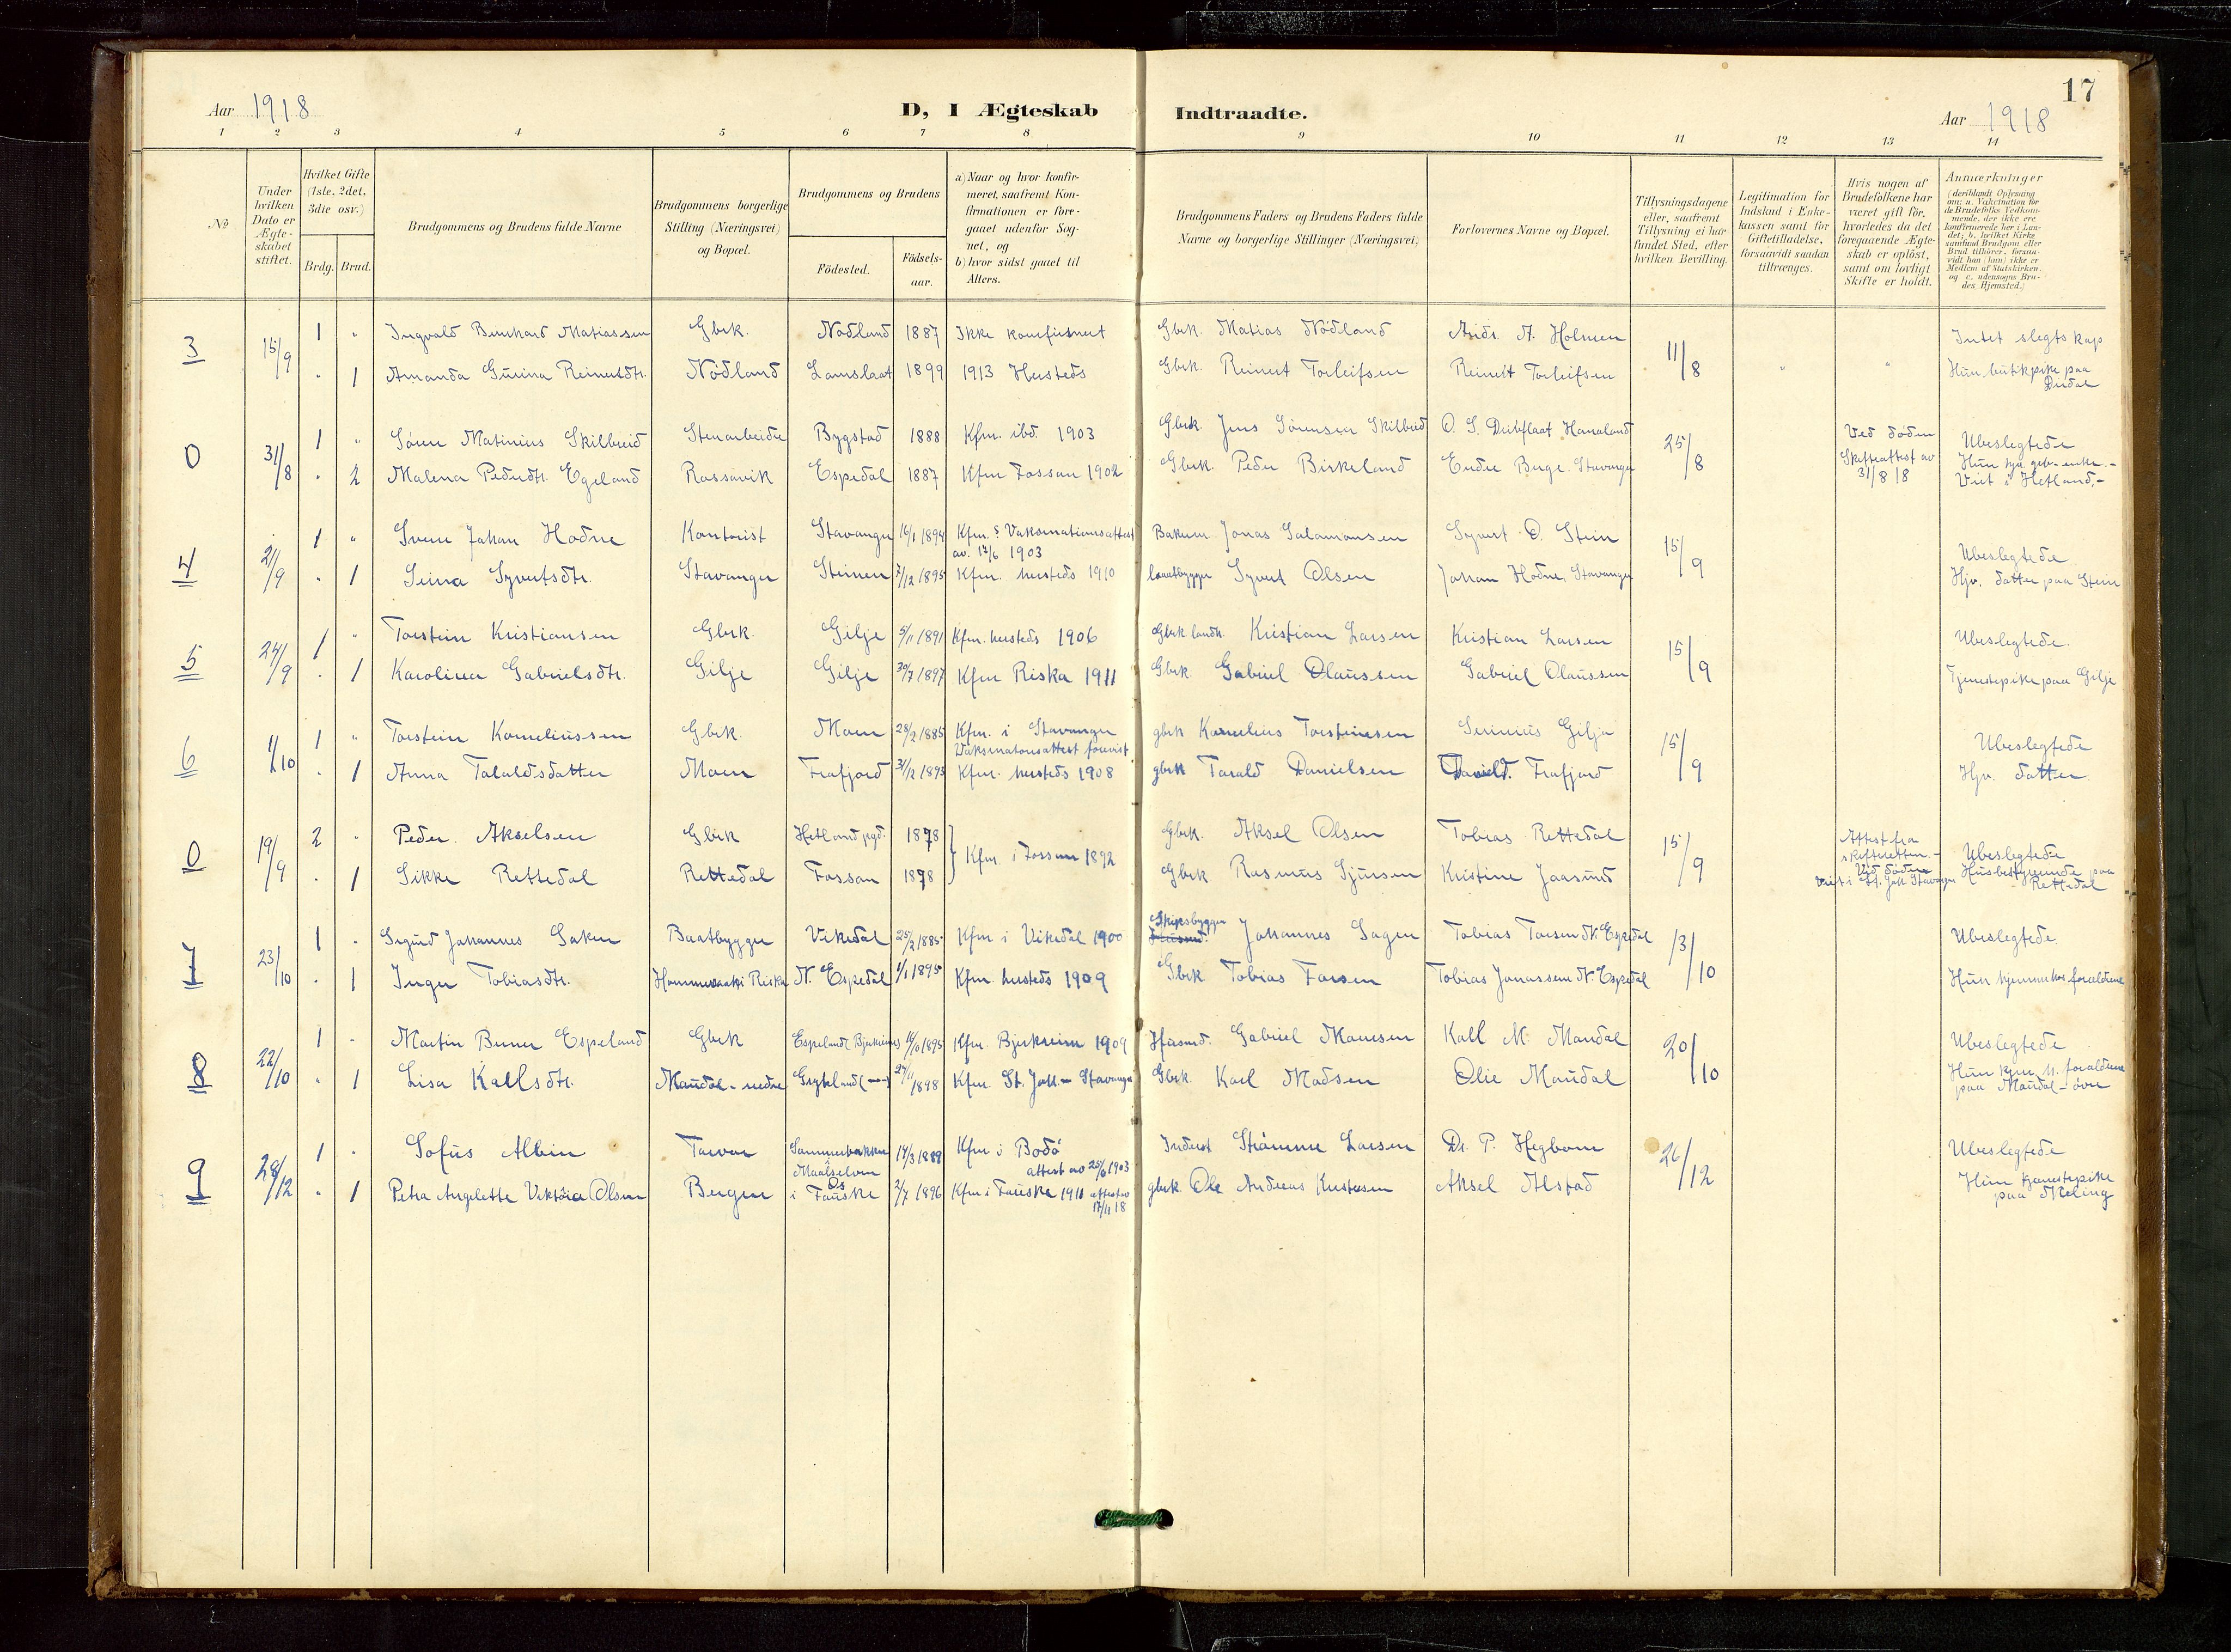 17
Aar 1918
D, I Ægteskab Indtraadte.
Aar 1918
1 2 3 4 5 6 7 8 9 10 11 12 13 14
No
Under hvilken Dato er Ægteskabet stiftet.
Hvilket Gifte (1ste, 2det, 3die osv.)
Brdg. Brud.
Brudgommens og Brudens fulde Navne
Brudgommens borgerlige Stilling (Næringsvei) og Bopæl.
Brudgommens og Brudens
Födested. Födsels-aar.
a) Naar og hvor konfirmeret, saafremt Konfirmationen er foregaaet udenfor Sognet, og
b) hvor sidst gaaet til Alters.
Brudgommens Faders og Brudens Faders fulde Navne og borgerlige Stillinger (Næringsvei)
Forlovernes Navne og Bopæl.
Tillysningsdagene eller, saafremt Tillysning ei har fundet Sted, efter hvilken Bevilling.
Legitimation for Indskud i Enkekassen samt for Giftetilladelse, forsaavidt saadan tiltrænges.
Hvis nogen af Brudefolkene har været gift för, hvorledes da det foregaaende Ægteskab er oplöst, samt om lovligt Skifte er holdt.
Anmærkninger
(deriblandt Oplysning om: a. Vakcination for de Brudefolks Vedkommende, der ikke ere konfirmerede her i Landet; b. hvilket Kirkesamfund Brudgom eller Brud tilhörer, forsaavidt han (hun) ikke er Medlem af Statskirken, og c. udensogns Brudes Hjemsted.)
3 15/9 1 " Ingvald Bernhard Matiassen Gbrk. Nødland 1887 Ikke konfirmert Gbrk. Matias Nødland A. Holmen 11/8 " " Intet slegtskap
" 1 Amanda Gurina Reinertdtr. Nødland Lauslaat 1899 1913 Hersteds Gbrk. Reinert Torleifsen Reinert Torleifsen Hun butikpike paa Dirdal
0 31/8 1 " Søren Matinius Skilbreid Stenarbeider Bygstad 1888 Kfm. ibd. 1903 Gbrk. Jens Sørensen Skilbreid O. S. Hanaland 25/8 Ved døden Skifteattest av 31/8 18 Ubeslegtede
" 2 Malena Pedersdtr. Egeland Rossavik Espedal 1887 Kfm Fossan 1902 Gbrk. Peder Birkeland Endre Berge. Stavanger Hun enke.- Viet i Hetland.-
4 21/9 1 " Sven Johan Hodne Kontorist Stavanger 16/1 1894 Kfm. ? Vaksinationsattest av. 12/6 1903 Jonas Salamonsen Syvert O. Stein 15/9 Ubeslegtede
" 1 Serina Syvertsdtr. Stavanger Steinen 7/12 1895 Kfm. hersteds 1910 baatbygger Syvert Olsen Johan Hodne, Stavanger Hjv. datter paa Stein
5 24/9 1 " Torstein Kristiansen Gbrk. Gilje 5/11 1891 Kfm. hersteds 1906 Gbrk. landh. Kristian Larsen Kristian Larsen 15/9 Ubeslegtede.
" 1 Karoline Gabrielsdtr. Gilje Gilje 30/7 1897 Kfm Riska 1911 Gbrk. Gabriel Olaussen Gabriel Olaussen Tjenestepike paa Gilje
6 1/10 1 " Torstein Korneliussen Gbrk. Moen 28/2 1885 Kfm. i Stavanger Vaksinationsattest forevist gbrk Kornelius Torsteinsen Serinius Gilje 15/9 Ubeslegtede
" 1 Anna Taraldsdatter Moen Frafjord 31/12 1893 Kfm. hersteds 1908 gbrk Tarald Danielsen Daniel T. Frafjord Hjv. datter
0 19/9 2 " Peder Akselsen Gbrk Hetland pgd. 1878 Kfm. i Fossan 1892 Gbrk. Aksel Olsen Tobias Rettedal 15/9 Attest fra skifteretten.- Ved døden Viet i St. Joh. Stavanger Ubeslegtede
" 1 Sikke Rettedal Rettedal Fossan 1878 Gbrk. Rasmus Sjursen Kristine Jaasund Husbestyrerinde paa Rettedal
7 23/10 1 " Sigurd Johannes Saken Baatbygger Vikedal 25/2 1885 Kfm i Vikedal 1900 Skipsbygger Johannes Sagen Tobias Torsen N. Espedal 13/10 Ubeslegtede
" 1 Inger Tobiasdtr. Hommersaak Riska N. Espedal 1/1 1895 Kfm. hersteds 1909 Gbrk Tobias Torsen Tobias Jonassen N. Espedal Hun hjemme hos forældrene
8 22/10 1 " Martin Berner Espeland Gbrk Espeland (Bjerkreim) 1895 Kfm. Bjerkreim 1909 Husmd. Gabriel Monsen Kall M. Maudal 20/10 Ubeslegtede
" 1 Lisa Kallsdtr. Maudal-nedre 27/11 1898 Kfm. St. Joh.- Stavanger Gbrk. Karl Madsen Olie Maudal Hun hjem. h. forældrene paa Maudal-øvre
9 28/12 1 " Sofus Albin Sommerbakken Maalselven 14/3 1889 Kfm i Bodø attest av 25/6 1903 Inderst Strømme Larsen Dr. P. Hegbom 26/12 Ubeslegtede
" 1 Petra Angelette Viktoria Olsen Bergen Os i Fauske 2/7 1896 Kfm i Fauske 1911 attest av 17/11 18 gbrk. Ole Andreas Kristensen Aksel Alstad Hun tjenestepike paa Meling